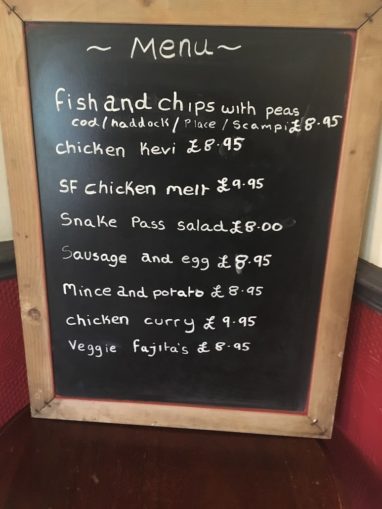 ~ Menu ~
fish and chips with peas
cod/haddock/Place/Scampi £8.95
chicken Kevi £8.95
SF chicken melt £9.95
Snake Pass salad £8.00
Sausage and egg £8.95
Mince and potato £8.95
chicken curry £9.95
Veggie fajita's £8.95